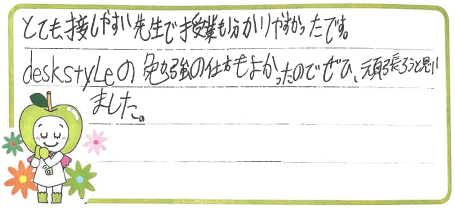 とても接しやすい先生で授業も分かりやすかったです。
deskstyleの勉強の仕方もよかったのでぜひ、頑張ろうと思い
ました。